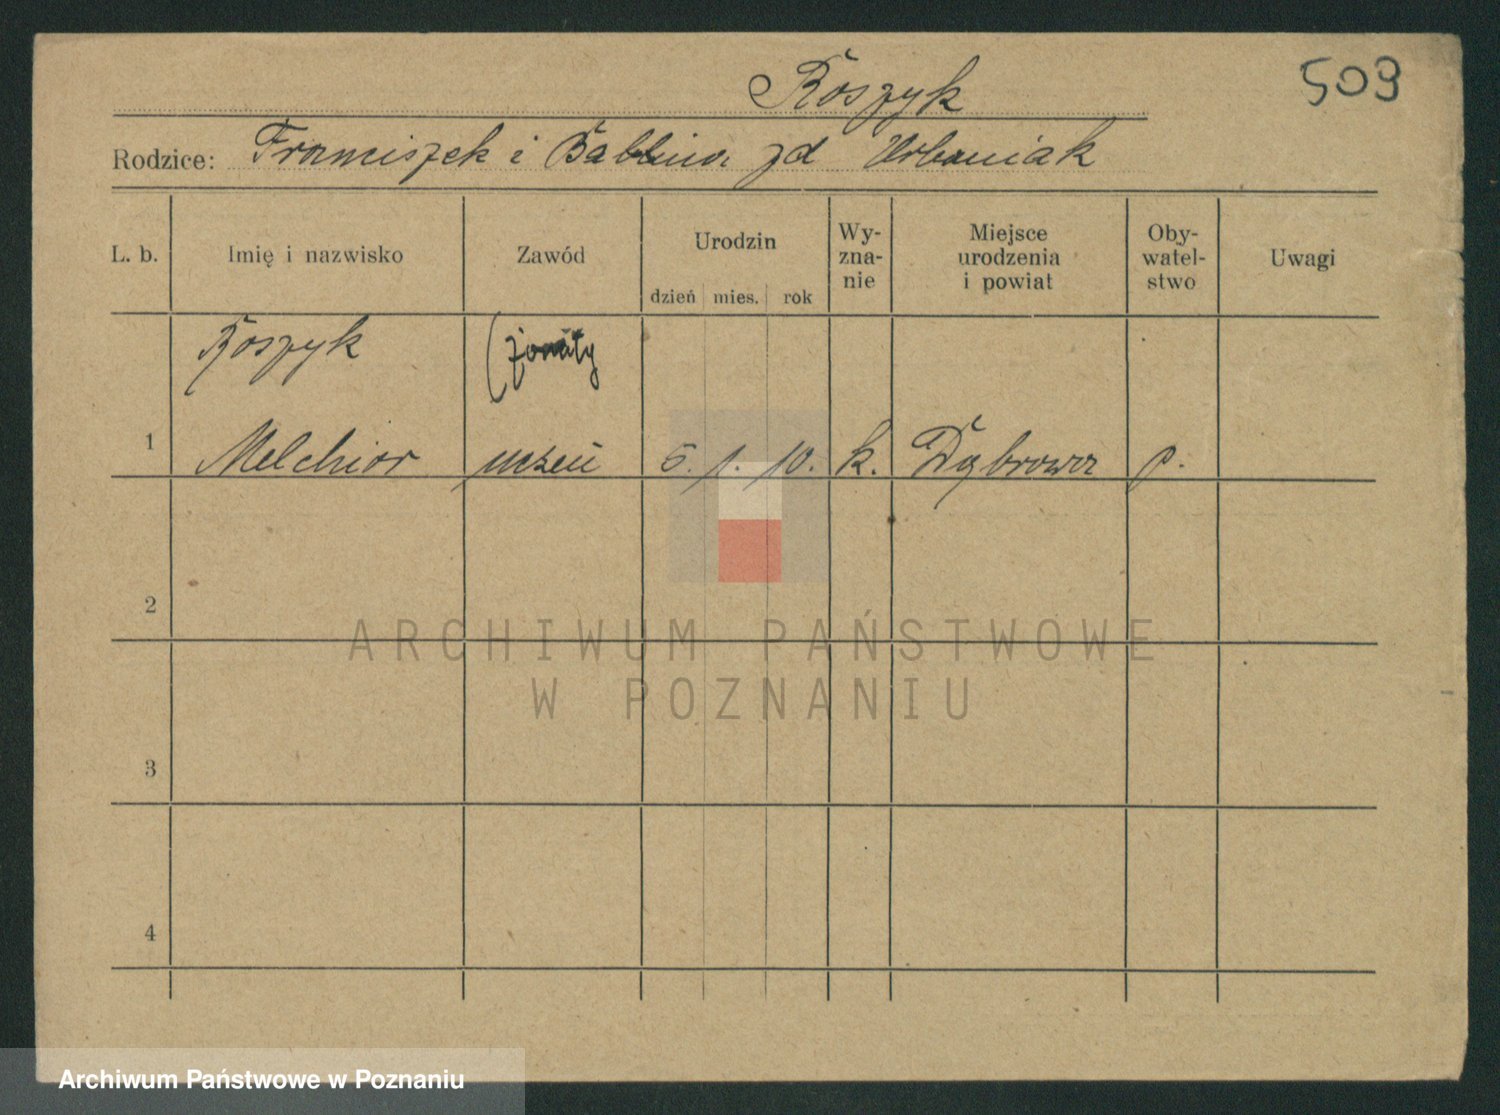 Roszyk
509
Rodzice: Franciszek i Balbina zd Urbaniak
L. b.
Imię i nazwisko
Zawód
Urodzin
dzień mies. rok
Wy-
zna-
nie
Miejsce
urodzenia
i powiat
Oby-
watel-
stwo
Uwagi
Roszyk (żonaty
1 Melchior uczeń 6. 1. 10. k. Dąbrowa p.
2
3
4
ARCHIWUM PAŃSTWOWE
W POZNANIU
Archiwum Państwowe w Poznaniu